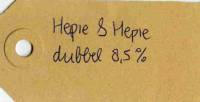 Hepie & Hepie
dubbel 8,5%